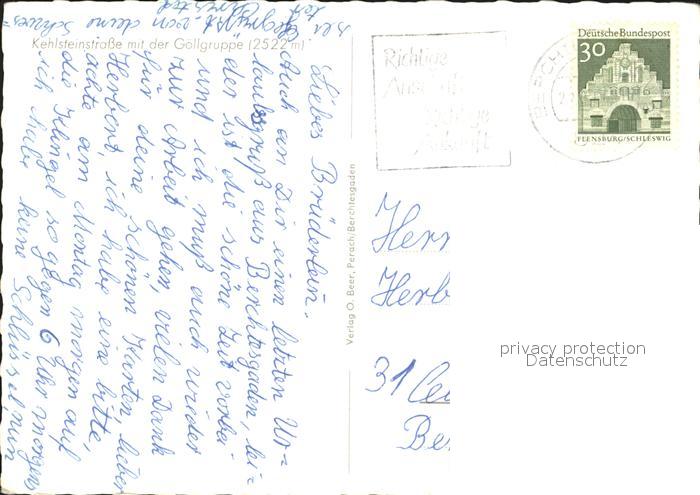 Kehlsteinstraße mit der Göllgruppe (2522 m)
Liebes Brüderlein.
Auch an Dir einen letzten Ur-
laubsgruß aus Berchtesgaden, lei-
der ist die schöne Zeit vorbei
und ich muß auch wieder
zur Arbeit gehen, vielen Dank
für deine schönen Karten, lieber
Herbert, ich habe eine bitte,
achte am Montag morgen auf
die Klingel so gegen 6 Uhr morgens
ich habe keine Schlüssel nun
sei gegrüßt von deine Schwes-
ter
Verlag O. Beer, Perach/Berchtesgaden
Richtige
Anschrift
richtige
Auskunft
BERCHT
Deutsche Bundespost
30
FLENSBURG/SCHLESWIG
Herr
Herb
31 Ce
Be
privacy protection
Datenschutz